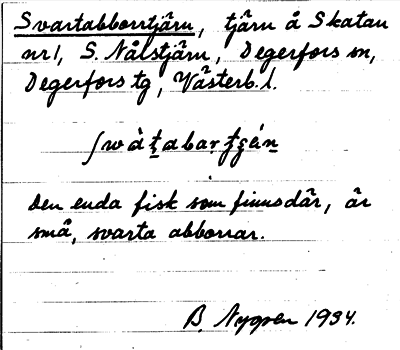 Svartabborrtjärn, tjärn å Skatan
nr 1, S. Nålstjärn, Degerfors sn,
Degerfors tg, Västerb. l.
Den enda fisk som finns där, är
små, svarta abborrar.
B. Nygren 1934.